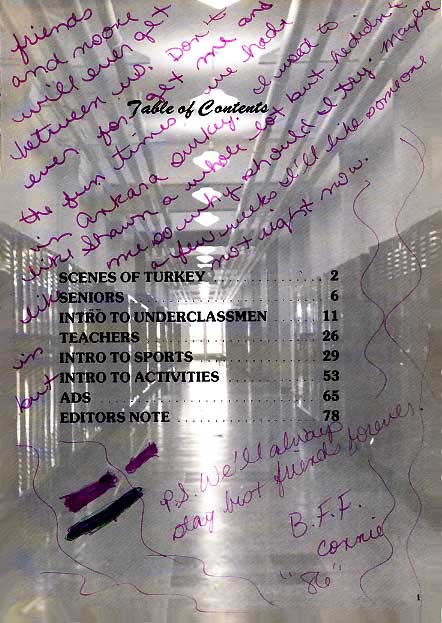 friends
and noone
will ever get
between us. Don't
ever forget me and
the fun times we had
in ankara turkey. I used to
like Shawn a whole lot but he didn't
like me so why should I try. Maybe
in a few weeks I'll like someone
but not right now.
Table of Contents
SCENES OF TURKEY 2
SENIORS 6
INTRO TO UNDERCLASSMEN 11
TEACHERS 26
INTRO TO SPORTS 29
INTRO TO ACTIVITIES 53
ADS 65
EDITORS NOTE 78
P.S. We'll always
stay best friends forever.
B.F.F.
Connie
"86"
1